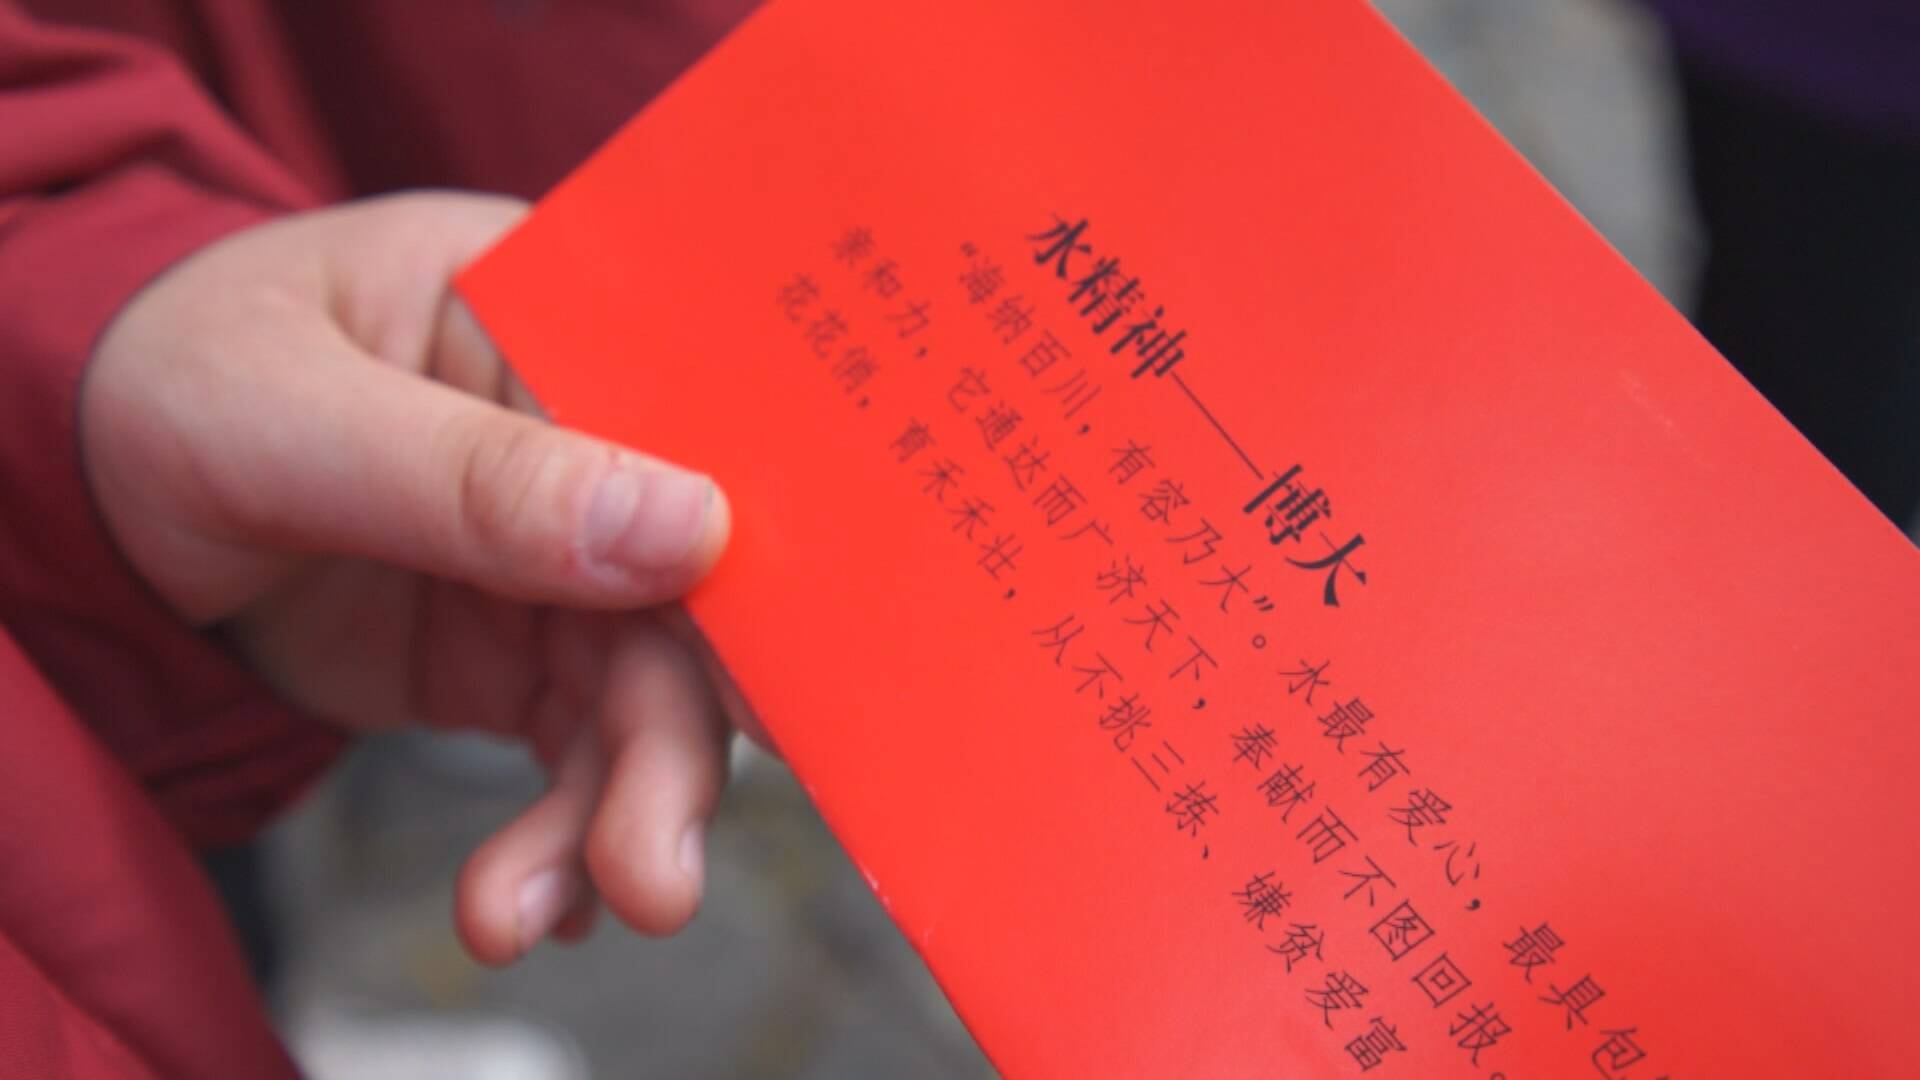 水精神——博大
“海纳百川，有容乃大”。水最有爱心，最具包
亲和力，它通达而广济天下，奉献而不图回报。
花花俏，育禾禾壮，从不挑三拣、嫌贫爱富